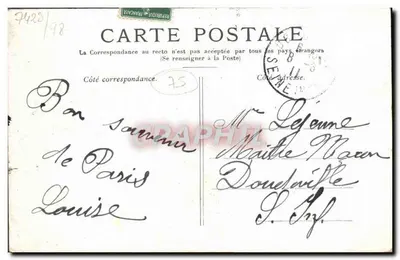 7423/98
CARTE POSTALE
La Correspondance au recto n'est pas acceptée par tous les pays étrangers
(Se renseigner à la Poste)
Côté correspondance.
Côté adresse.
75
Bon
souvenir
de Paris
Louise
Mme Lejeune
Maître Maçon
Doudeville
S. Inf.